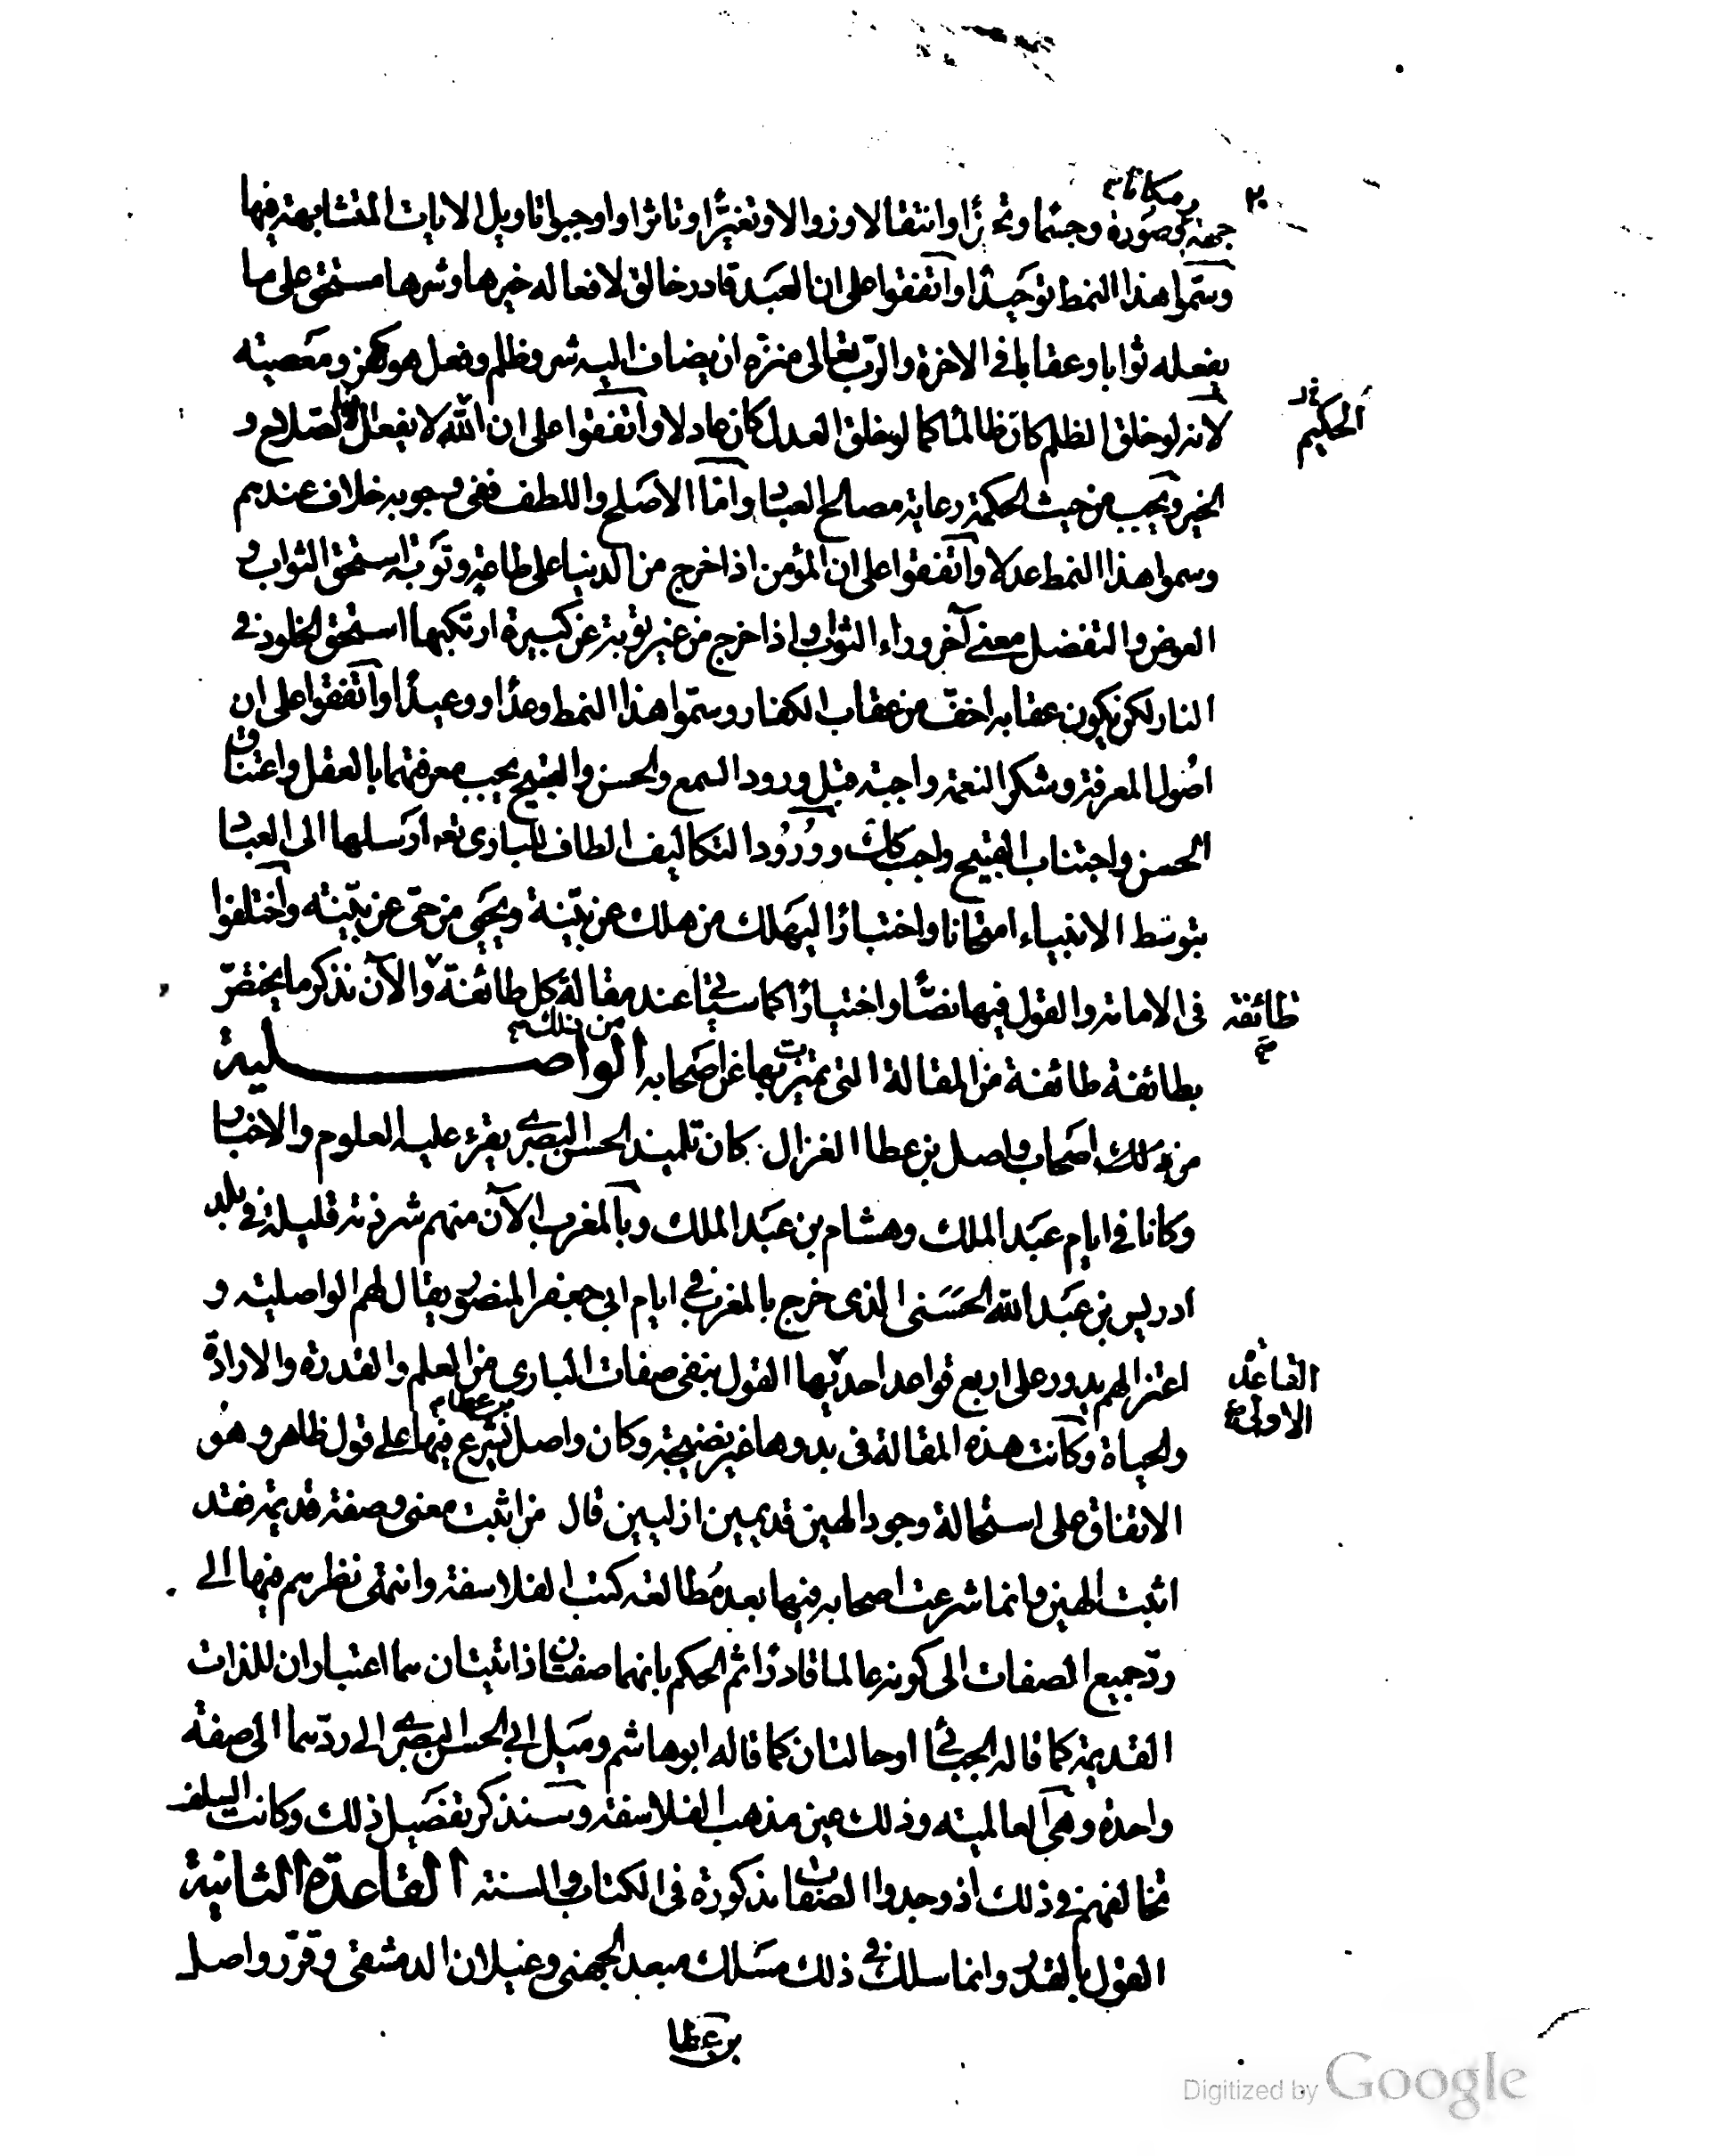 ٢٠
ومكانا
جهة وصورة وجسما وتحيزا وانتقالا وزوالا وتغيرا وتاثرا واوجبوا تاويل الايات المتشابهة فيها
وسموا هذا النمط توحيدا واتفقوا على ان العبد قادر خالق لافعاله خيرها وشرها مستحق على ما
يفعله ثوابا وعقابا فى الاخرة والرب تعالى منزه ان يضاف اليه شر وظلم وفعل هو كفر ومعصية
لانه لو خلق الظلم كان ظالما كما لو خلق العدل كان عادلا واتفقوا على ان الله لا يفعل الا الصلاح و
الحكيم
الخير ويجب من حيث الحكمة رعاية مصالح العباد واما الاصلح واللطف ففى وجوبه خلاف عندهم
وسموا هذا النمط عدلا واتفقوا على ان المؤمن اذا خرج من الدنيا على طاعة وتوبة استحق الثواب و
العوض والتفضل معنى آخر وراء الثواب واذا خرج من غير توبة عن كبيرة ارتكبها استحق الخلود فى
النار لكن يكون عقابه اخف من عقاب الكفار وسموا هذا النمط وعدا ووعيدا واتفقوا على ان
اصول المعرفة وشكر النعمة واجبة قبل ورود السمع والحسن والقبيح يجب معرفتهما بالعقل واعتناق
الحسن واجتناب القبيح واجب كذلك وورود التكاليف الطاف للبارى تعه ارسلها الى العباد
بتوسط الانبياء امتحانا واختبارا ليهلك من هلك عن بينة ويحيى من حى عن بينة واختلفوا
فى الامامة والقول فيها نصا واختيارا كما سياتى عند مقالة كل طائفة والآن نذكر ما يختص
طائفة صح
من ذلك
بطائفة طائفة من المقالة التى تميزت بها عن اصحابه الواصلية
من ذلك اصحاب واصل بن عطا الغزال كان تلميذ الحسن البصرى يقرء عليه العلوم والاخبار
وكانا فى ايام عبد الملك وهشام بن عبد الملك وبالمغرب الآن منهم شرذمة قليلة فى بلد
ادريس بن عبد الله الحسنى الذى خرج بالمغرب فى ايام ابى جعفر المنصور يقال لهم الواصلية و
اعتزالهم يدور على اربع قواعد احديها القول بنفى صفات البارى من العلم والقدرة والارادة
القاعدة
الاولى
بن عطا
والحياة وكانت هذه المقالة فى بدوها غير نضيجة وكان واصل يشرع فيها على قول ظاهر وهو
الاتفاق على استحالة وجود الهين قديمين ازليين قال من اثبت معنى وصفة قديمة فقد
اثبت الهين وانما شرعت اصحابه فيها بعد مطالعة كتب الفلاسفة وانتهى نظرهم فيها الى
رد جميع الصفات الى كونه عالما قادرا ثم الحكم بانهما صفتان ذاتيتان هما اعتباران للذات
القديمة كما قاله الجبائى او حالتان كما قاله ابو هاشم وميل ابى الحسن البصرى الى ردهما الى صفة
واحدة وهى العالمية وذلك عين مذهب الفلاسفة وسنذكر تفصيل ذلك وكانت السلف
تخالفهم فى ذلك اذ وجدوا الصفات مذكورة فى الكتاب والسنة القاعدة الثانية
القول بالقدر وانما سلك فى ذلك مسلك معبد الجهنى وغيلان الدمشقى وقرر واصل
بن عطا
Digitized by Google